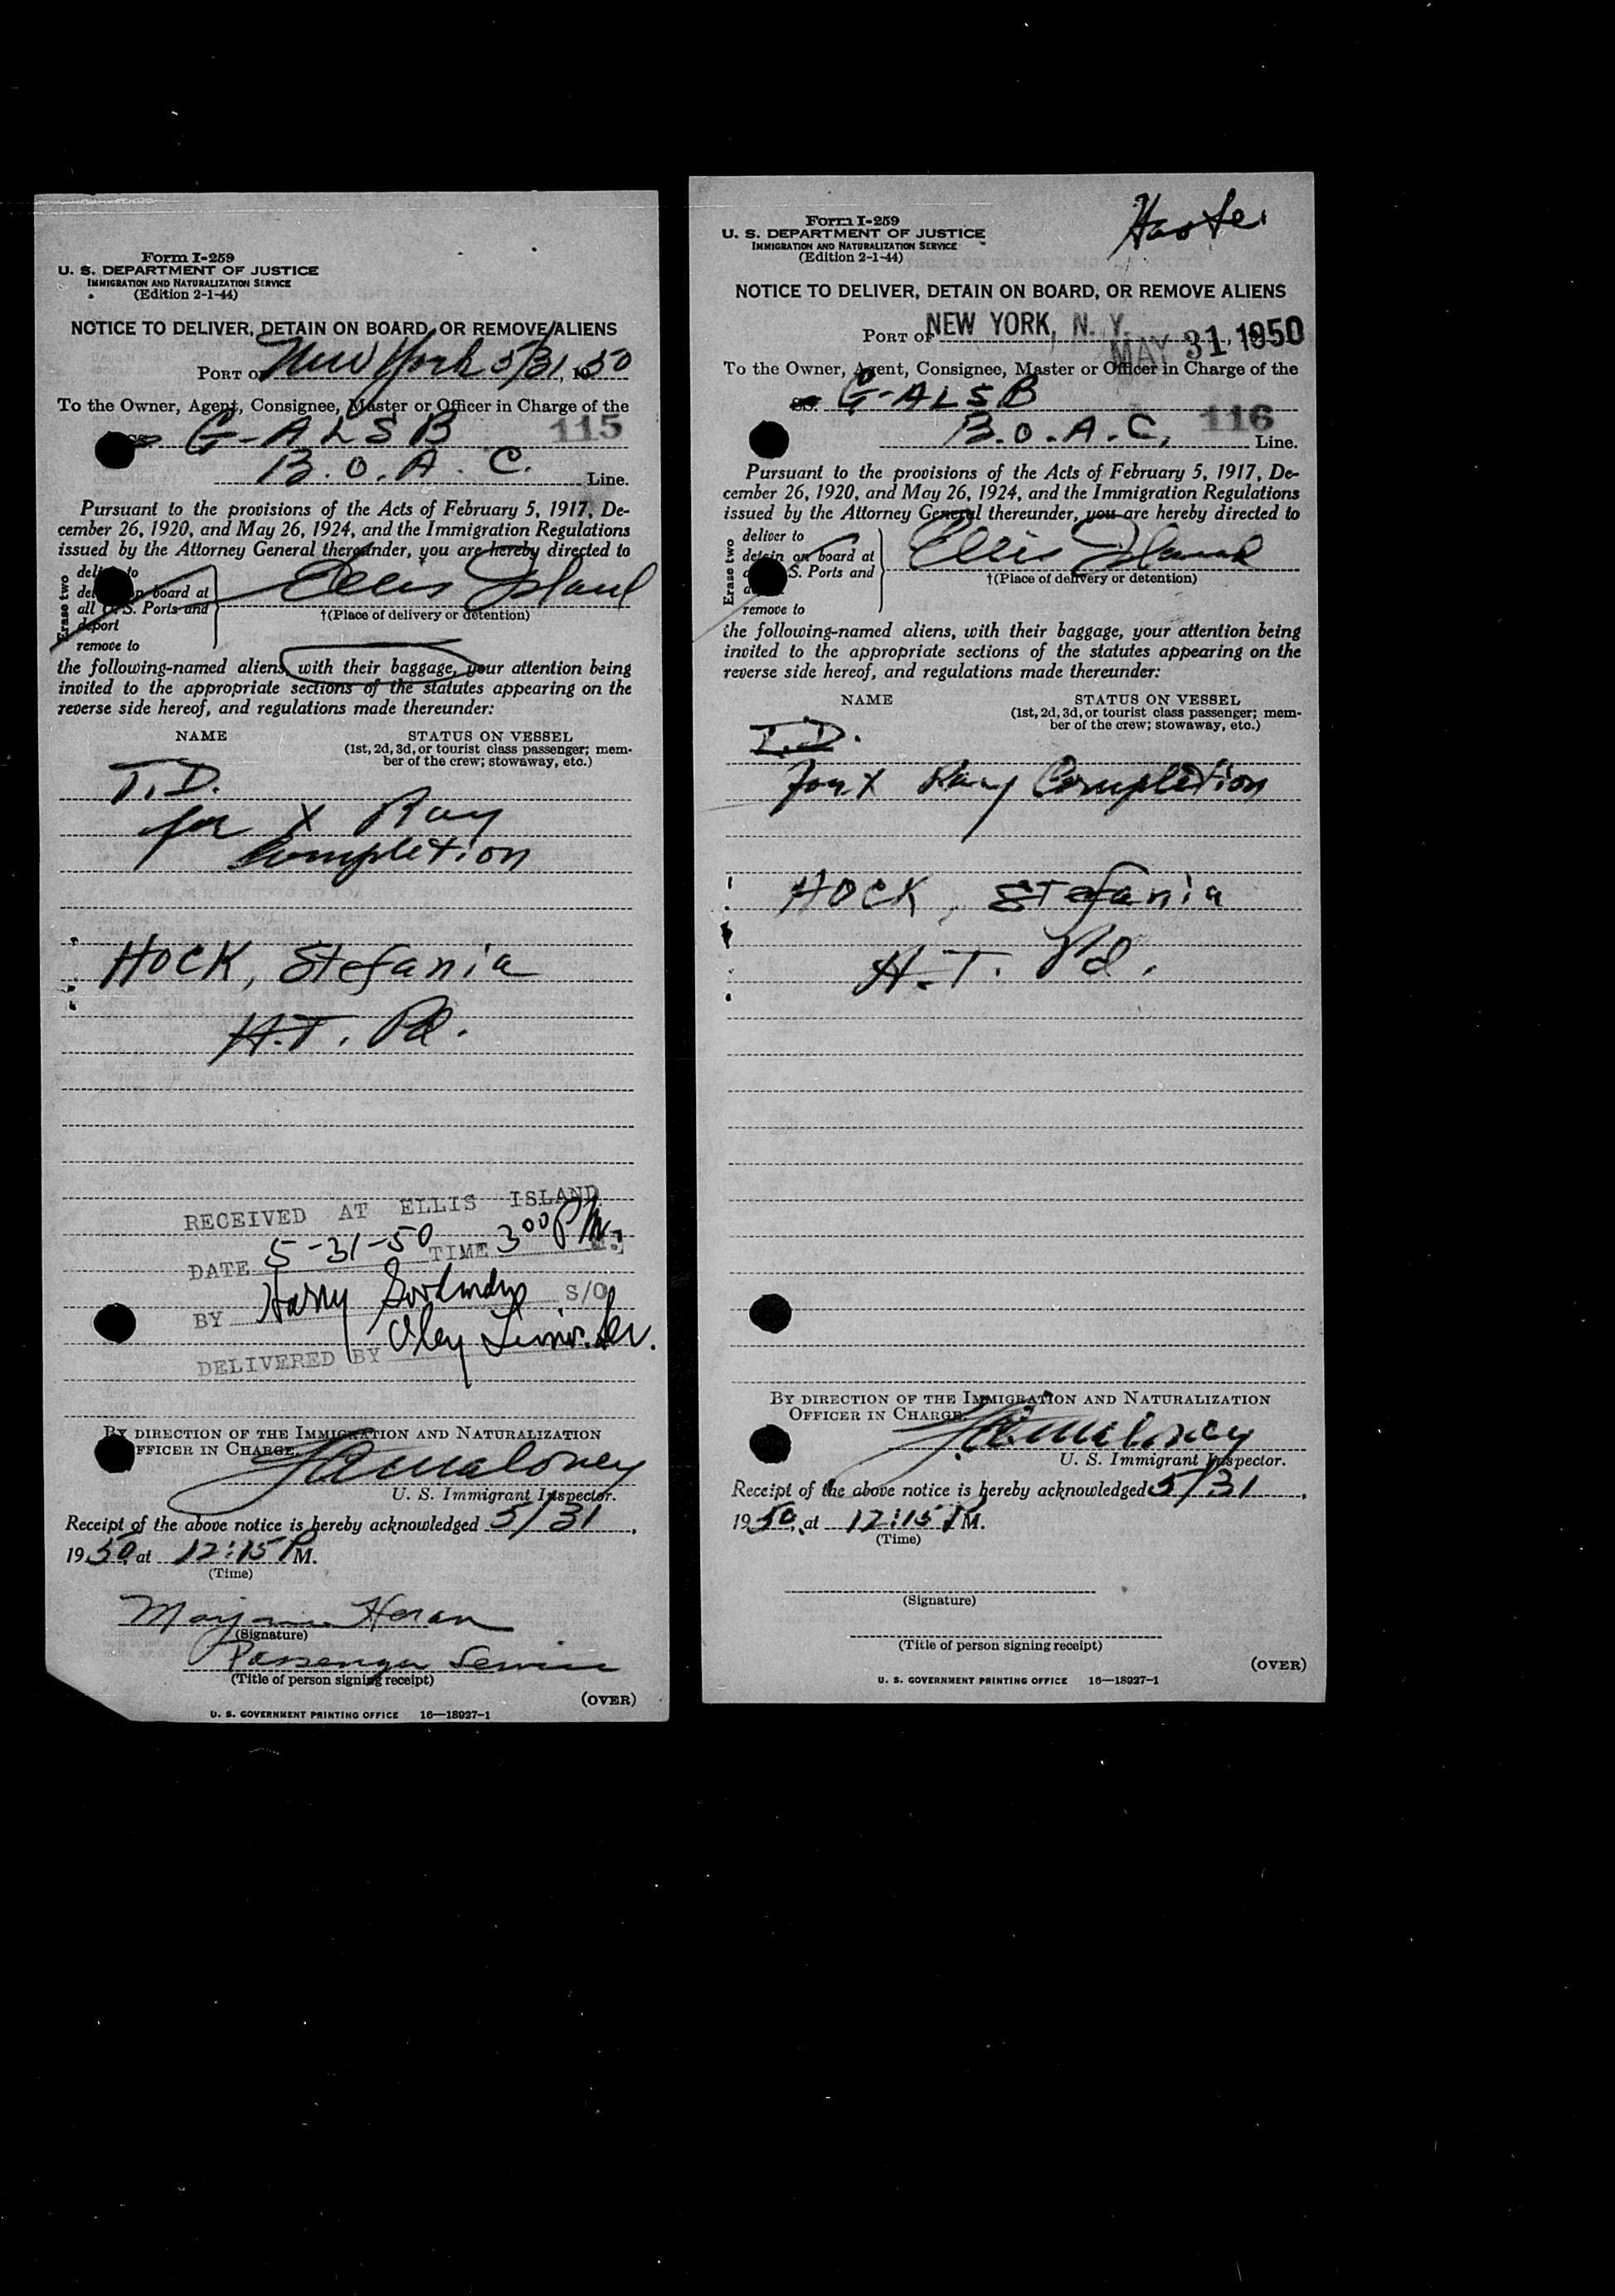 Form I-259
U. S. DEPARTMENT OF JUSTICE
IMMIGRATION AND NATURALIZATION SERVICE
(Edition 2-1-44)
NOTICE TO DELIVER, DETAIN ON BOARD, OR REMOVE ALIENS
PORT OF New York 5/31, 1950
To the Owner, Agent, Consignee, Master or Officer in Charge of the
G-ALSB 115
B.O.A.C. Line.
Pursuant to the provisions of the Acts of February 5, 1917, De-
cember 26, 1920, and May 26, 1924, and the Immigration Regulations
issued by the Attorney General thereunder, you are hereby directed to
Erase two
deliver to
detain on board at
all U. S. Ports and
deport
remove to
Ellis Island
†(Place of delivery or detention)
the following-named aliens, with their baggage, your attention being
invited to the appropriate sections of the statutes appearing on the
reverse side hereof, and regulations made thereunder:
NAME STATUS ON VESSEL
(1st, 2d, 3d, or tourist class passenger; mem-
ber of the crew; stowaway, etc.)
T.D.
for X Ray
Completion
HOCK, Stefania
H.T. Pd.
RECEIVED AT ELLIS ISLAND
DATE 5-31-50 TIME 3 00 PM.
BY Harry S/O
DELIVERED BY
BY DIRECTION OF THE IMMIGRATION AND NATURALIZATION
OFFICER IN CHARGE.
Maloney
U. S. Immigrant Inspector.
Receipt of the above notice is hereby acknowledged 5/31,
1950, at 12:15 PM.
(Time)
Marjorie Horan
(Signature)
Passenger Service
(Title of person signing receipt)
(OVER)
U. S. GOVERNMENT PRINTING OFFICE 16—18927-1
Form I-259
U. S. DEPARTMENT OF JUSTICE
IMMIGRATION AND NATURALIZATION SERVICE
(Edition 2-1-44)
NOTICE TO DELIVER, DETAIN ON BOARD, OR REMOVE ALIENS
PORT OF NEW YORK, N. Y. MAY 31, 1950
To the Owner, Agent, Consignee, Master or Officer in Charge of the
SS. G-ALSB
B.O.A.C. 116 Line.
Pursuant to the provisions of the Acts of February 5, 1917, De-
cember 26, 1920, and May 26, 1924, and the Immigration Regulations
issued by the Attorney General thereunder, you are hereby directed to
Erase two
deliver to
detain on board at
S. Ports and
remove to
Ellis Island
†(Place of delivery or detention)
the following-named aliens, with their baggage, your attention being
invited to the appropriate sections of the statutes appearing on the
reverse side hereof, and regulations made thereunder:
NAME STATUS ON VESSEL
(1st, 2d, 3d, or tourist class passenger; mem-
ber of the crew; stowaway, etc.)
T.D.
For X Ray Completion
HOCK, Stefania
H.T. Pd.
BY DIRECTION OF THE IMMIGRATION AND NATURALIZATION
OFFICER IN CHARGE.
Maloney
U. S. Immigrant Inspector.
Receipt of the above notice is hereby acknowledged 5/31,
1950, at 12:15 PM.
(Time)
(Signature)
(Title of person signing receipt)
(OVER)
U. S. GOVERNMENT PRINTING OFFICE 16—18927-1